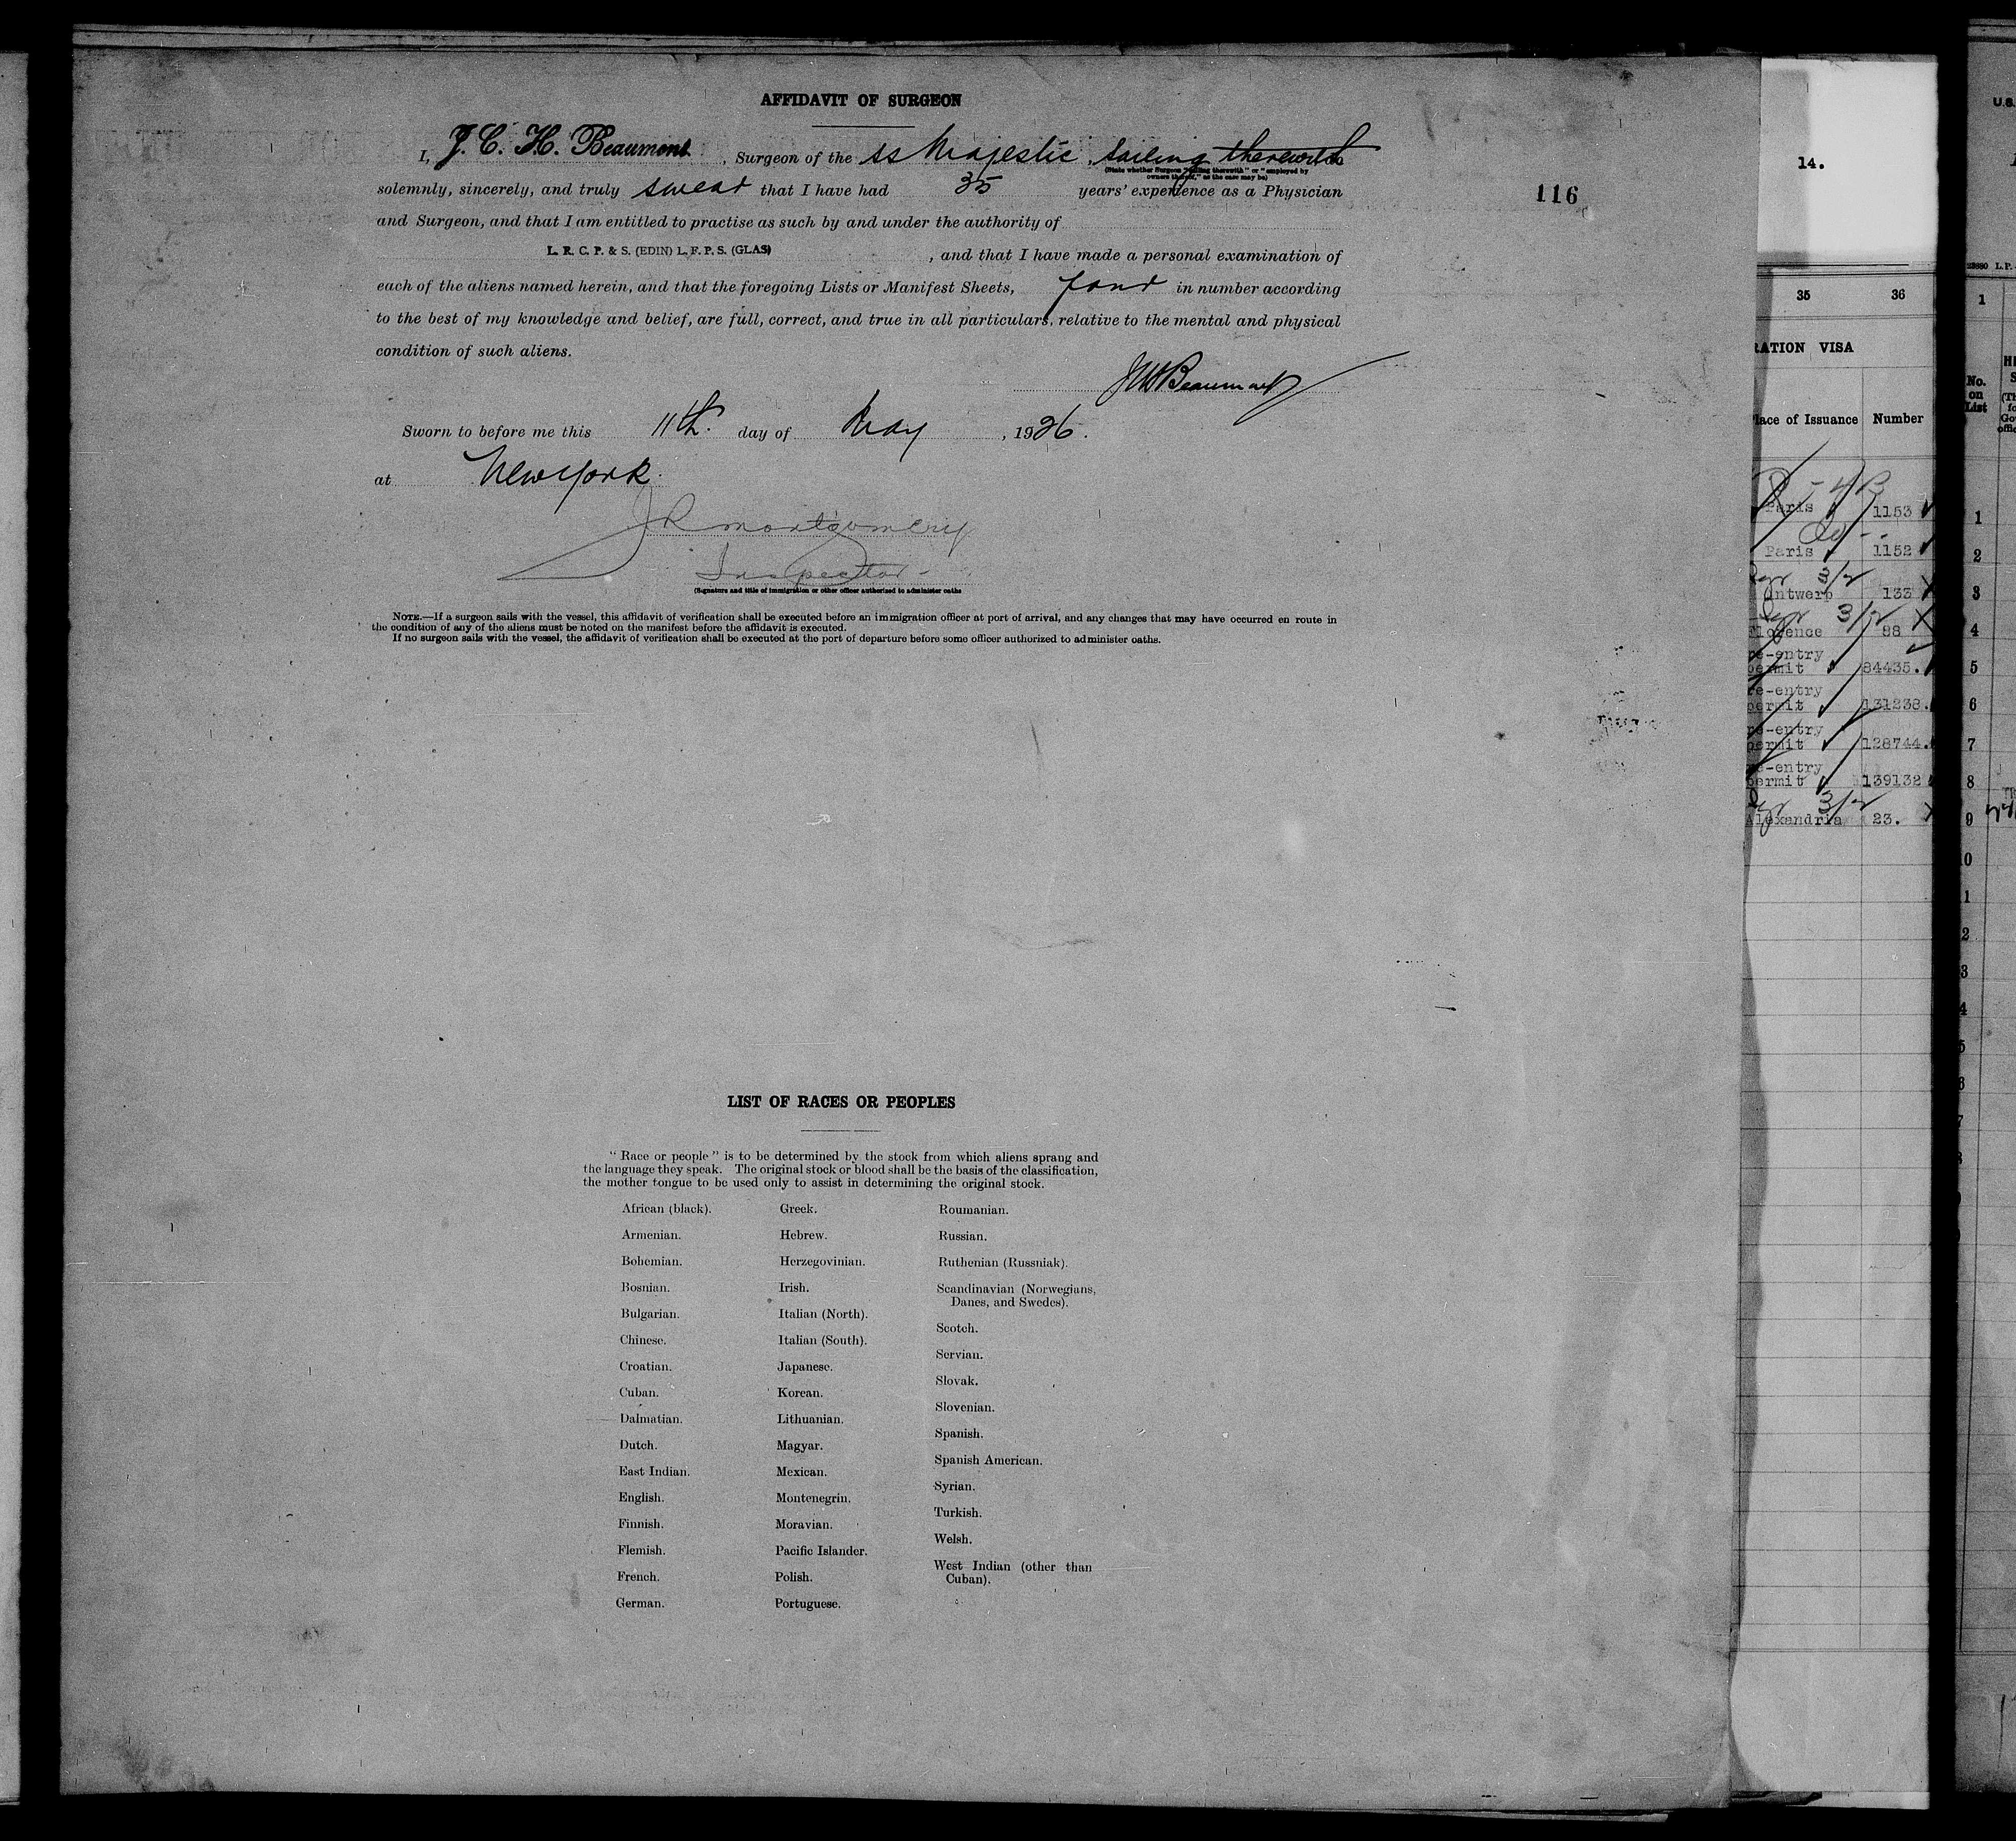 AFFIDAVIT OF SURGEON
I, J. C. H. Beaumont, Surgeon of the ss Majestic, sailing therewith
(State whether Surgeon "sailing therewith" or "employed by
owners thereof," as the case may be)
solemnly, sincerely, and truly swear that I have had 35 years' experience as a Physician
and Surgeon, and that I am entitled to practise as such by and under the authority of
L. R. C. P. & S. (EDIN) L. F. P. S. (GLAS), and that I have made a personal examination of
each of the aliens named herein, and that the foregoing Lists or Manifest Sheets, four in number according
to the best of my knowledge and belief, are full, correct, and true in all particulars, relative to the mental and physical
condition of such aliens.
JCHBeaumont
Sworn to before me this 11th. day of May, 1926.
at New York.
J R Montgomery
Inspector
(Signature and title of immigration or other officer authorized to administer oaths
NOTE.—If a surgeon sails with the vessel, this affidavit of verification shall be executed before an immigration officer at port of arrival, and any changes that may have occurred en route in
the condition of any of the aliens must be noted on the manifest before the affidavit is executed.
If no surgeon sails with the vessel, the affidavit of verification shall be executed at the port of departure before some officer authorized to administer oaths.
116
LIST OF RACES OR PEOPLES
"Race or people" is to be determined by the stock from which aliens sprang and
the language they speak. The original stock or blood shall be the basis of the classification,
the mother tongue to be used only to assist in determining the original stock.
African (black).
Armenian.
Bohemian.
Bosnian.
Bulgarian.
Chinese.
Croatian.
Cuban.
Dalmatian.
Dutch.
East Indian.
English.
Finnish.
Flemish.
French.
German.
Greek.
Hebrew.
Herzegovinian.
Irish.
Italian (North).
Italian (South).
Japanese.
Korean.
Lithuanian.
Magyar.
Mexican.
Montenegrin.
Moravian.
Pacific Islander.
Polish.
Portuguese.
Roumanian.
Russian.
Ruthenian (Russniak).
Scandinavian (Norwegians,
Danes, and Swedes).
Scotch.
Servian.
Slovak.
Slovenian.
Spanish.
Spanish American.
Syrian.
Turkish.
Welsh.
West Indian (other than
Cuban).
14.
35 36
RATION VISA
lace of Issuance Number
Paris 1153
Paris 1152
3/2
Antwerp 133
3/2
Florence 88
re-entry
permit 84435.
re-entry
permit 131238.
re-entry
permit 128744.
re-entry
permit 139132
3/2
Alexandria 23.
U.S.
L.P.
1
No.
on
List
1
2
3
4
5
6
7
8
9